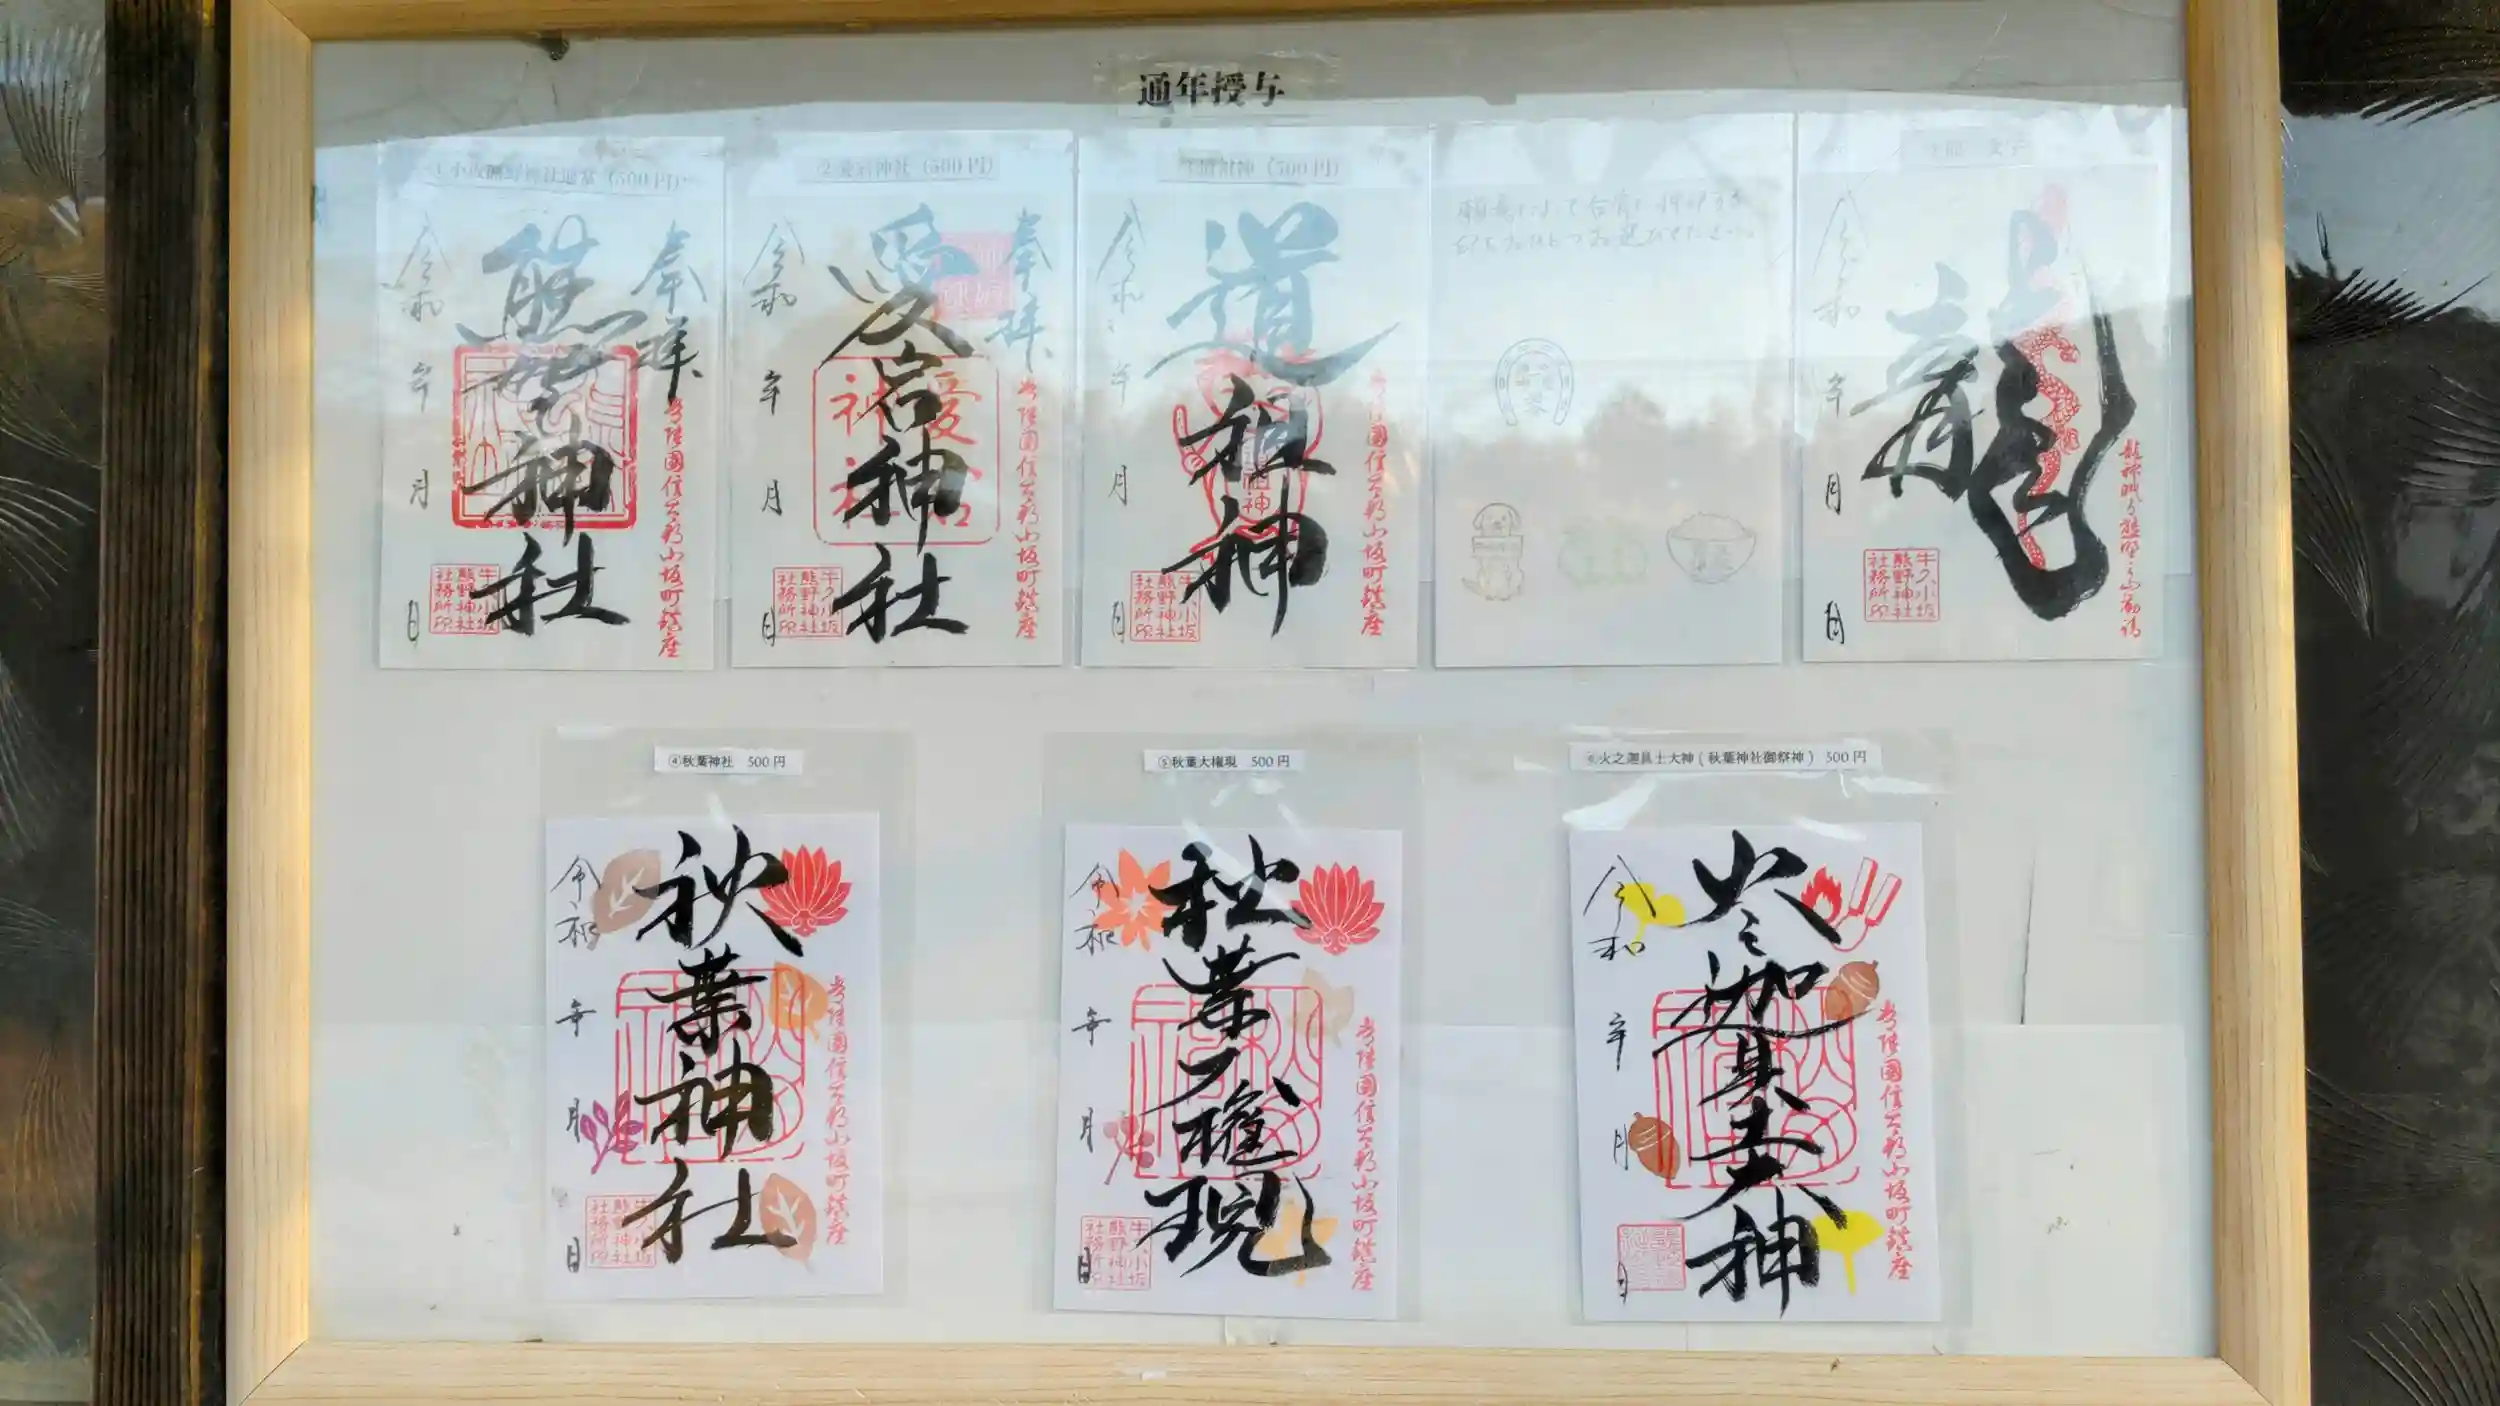 通年授与
①小坂熊野神社通常（500円）
奉拝
熊野神社
常陸國信太郡小坂町鎮座
牛久小坂
熊野神社
社務所印
令和
年
月
日
②愛宕神社（500円）
奉拝
愛宕神社
愛宕
神社
常陸國信太郡小坂町鎮座
牛久小坂
熊野神社
社務所印
令和
年
月
日
③道祖神（500円）
道祖神
常陸國信太郡小坂町鎮座
牛久小坂
熊野神社
社務所印
令和
年
月
日
龍
牛久小坂
熊野神社
社務所印
令和
年
月
日
④秋葉神社 500円
秋葉神社
常陸國信太郡小坂町鎮座
牛久小坂
熊野神社
社務所印
令和
年
月
日
⑤秋葉大権現 500円
秋葉大権現
常陸國信太郡小坂町鎮座
牛久小坂
熊野神社
社務所印
令和
年
月
日
⑥火之迦具土大神(秋葉神社御祭神) 500円
火之迦具土大神
常陸國信太郡小坂町鎮座
令和
年
月
日